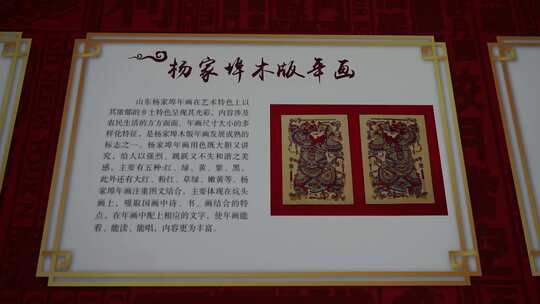 杨家埠木版年画
山东杨家埠年画在艺术特色上以
其浓郁的乡土特色呈现其光彩。内容涉及
农民生活的方方面面、年画尺寸大小的多
样化特征，是杨家埠木版年画发展成熟的
标志之一。杨家埠年画用色既大胆又讲
究，给人以强烈、跳跃又不失和谐之美
感，主要有五种:红、绿、黄、紫、黑，
此外还有大红、粉红、草绿、嫩黄等。杨
家埠年画注重图文结合，主要体现在炕头
画上，吸取国画中诗、书、画结合的特
点，在年画中配上相应的文字，使年画能
看、能读、能唱，内容更为丰富。